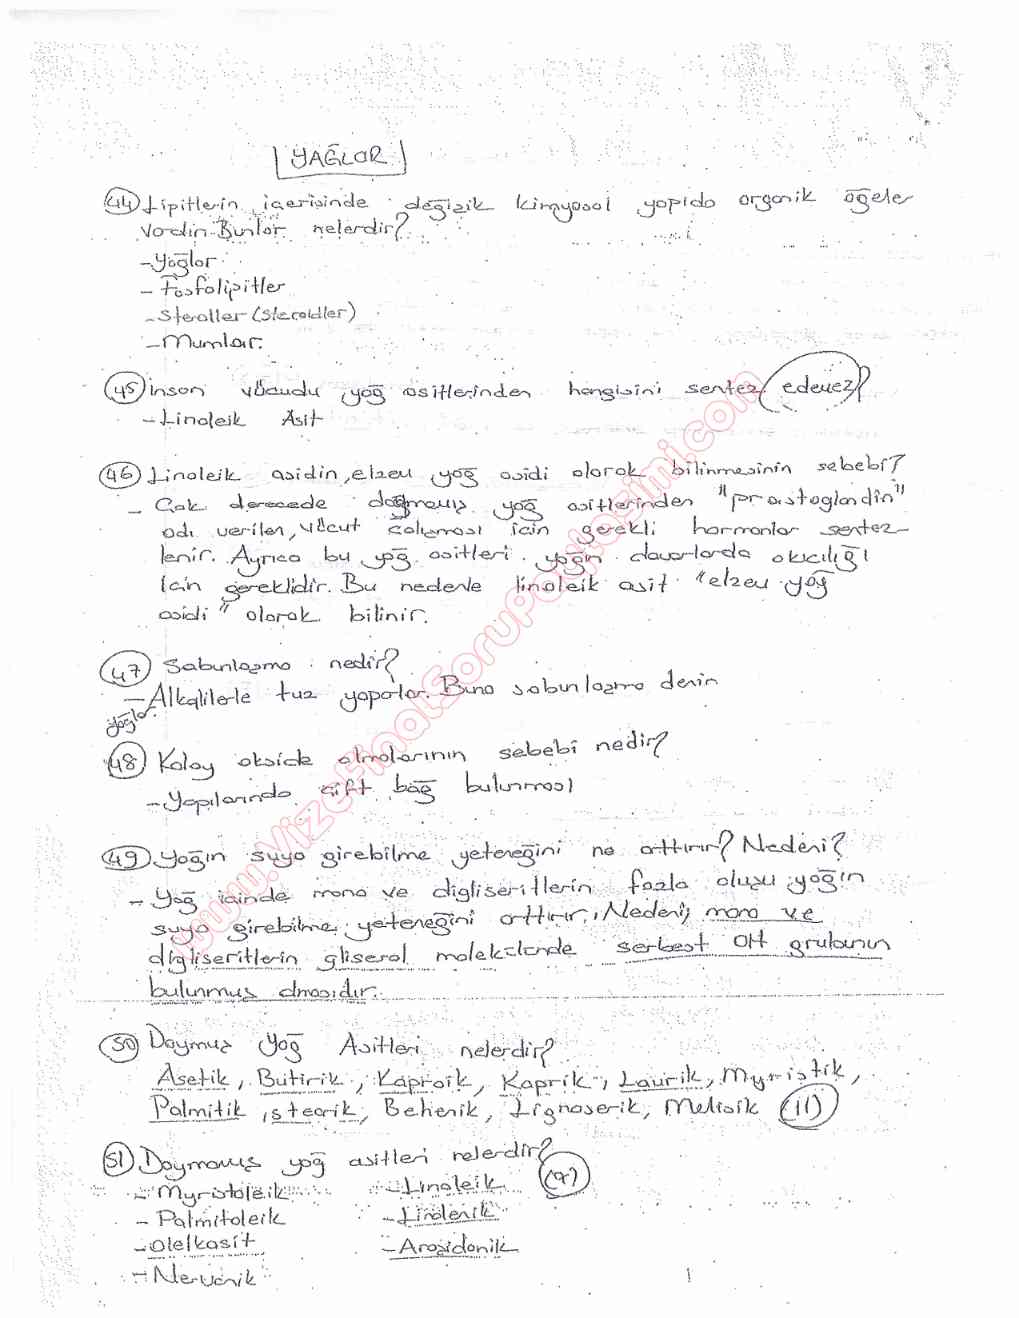 YAĞLAR
44) Lipitlerin içerisinde değişik kimyasal yapıda organik öğeler
vardır. Bunlar nelerdir?
- Yağlar
- Fosfolipitler
- Steroller (Steroidler)
- Mumlar.
45) İnsan vücudu yağ asitlerinden hangisini sentez edemez?
- Linoleik Asit
46) Linoleik asidin, elzem yağ asidi olarak bilinmesinin sebebi?
- Çok derecede doymamış yağ asitlerinden "prostoglandin"
adı verilen, vücut çalışması için gerekli hormonlar sentez-
lenir. Ayrıca bu yağ asitleri yağın damarlarda akıcılığı
için gereklidir. Bu nedenle linoleik asit "elzem yağ
asidi" olarak bilinir.
47) Sabunlaşma nedir?
- Alkalilerle tuz yaparlar. Buna sabunlaşma denir
Yağlar
48) Kolay okside olmalarının sebebi nedir?
- Yapılarında çift bağ bulunması
49) Yağın suya girebilme yeteneğini ne arttırır? Nedeni?
- Yağ içinde mono ve digliseritlerin fazla oluşu yağın
suya girebilme yeteneğini arttırır. Nedeni, mono ve
digliseritlerin gliserol molekülünde serbest OH grubunun
bulunmuş olmasıdır.
50) Doymuş Yağ Asitleri nelerdir?
Asetik, Butirik, Kaproik, Kaprik, Laurik, Myristik,
Palmitik, stearik, Behenik, Lignoserik, Melisik (11)
51) Doymamış yağ asitleri nelerdir? (7)
- Myristoleik - Linoleik
- Palmitoleik - Linolenik
- Oleikasit - Araşidonik
- Nervonik
1
www.VizeFinalSoruPaylasimi.com